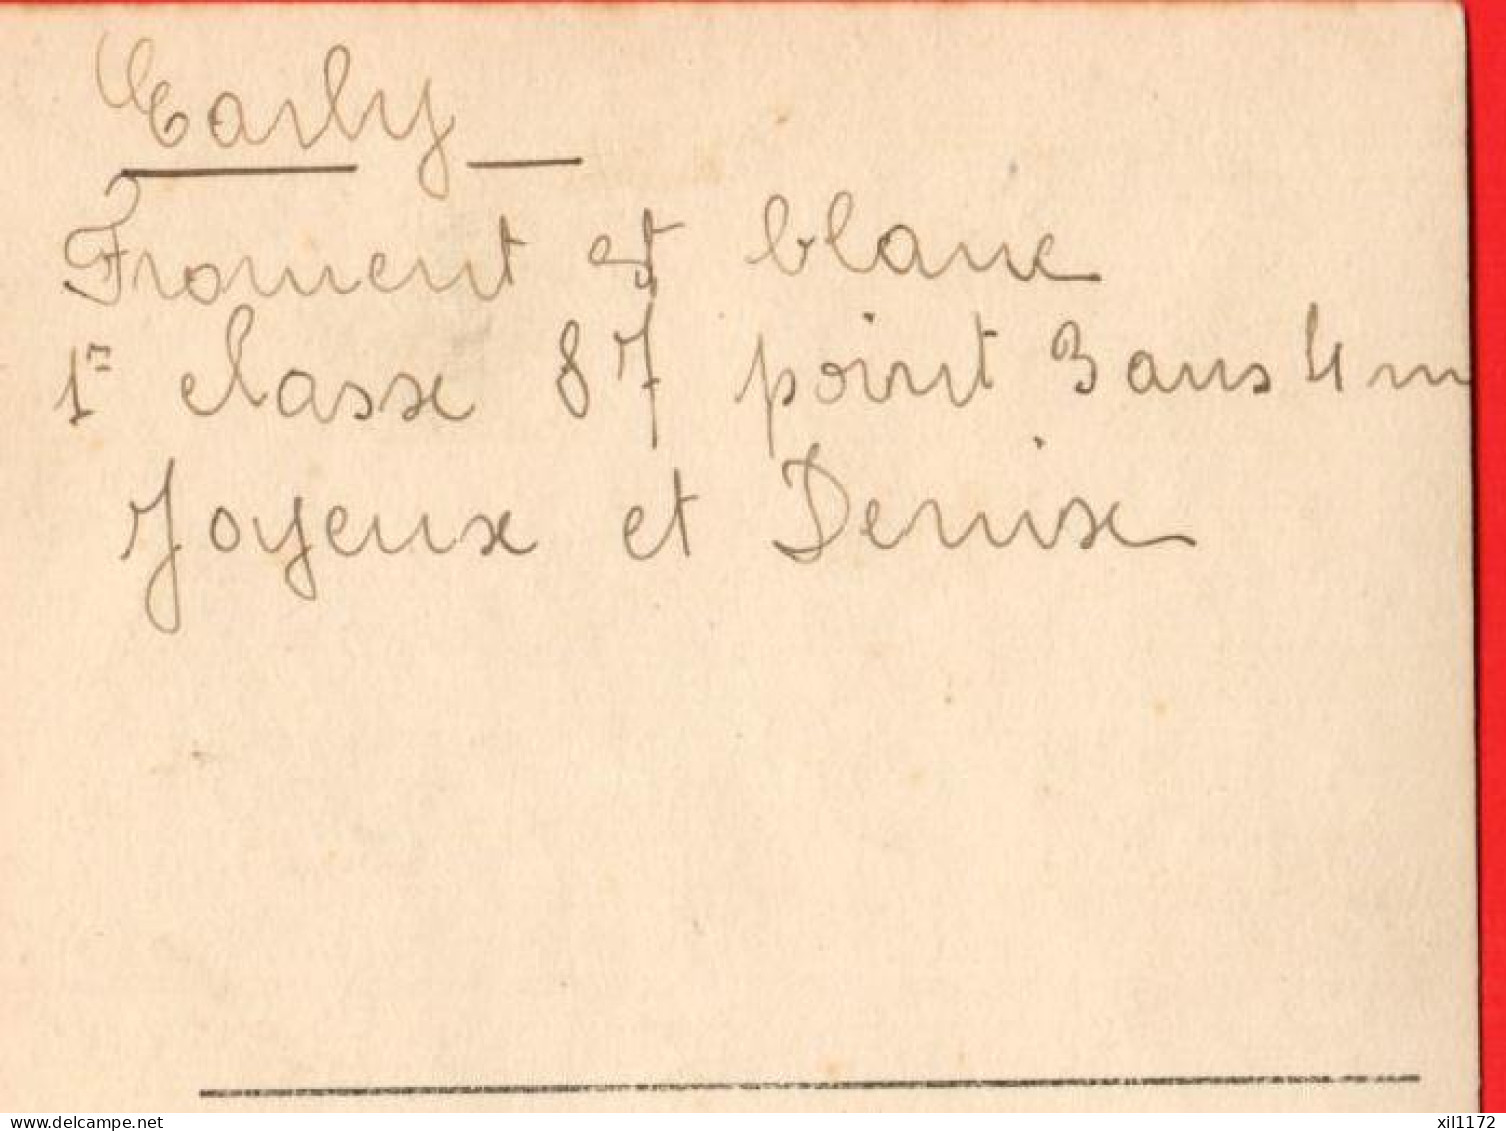 Carly
Froment et blanc
1re classe 87 point 3 ans 4 m
Joyeux et Denise
delcampe.net
xil1172